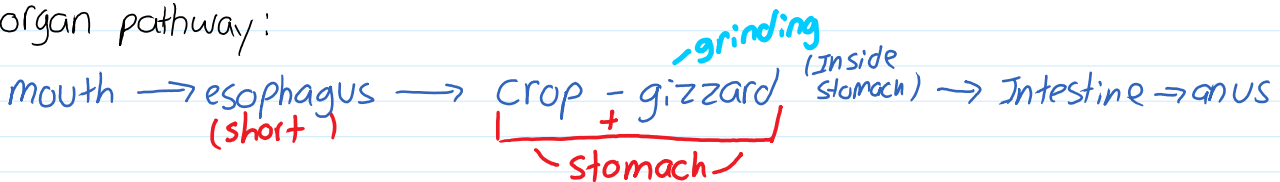 organ pathway:
grinding
mouth → esophagus → crop - gizzard (Inside stomach) → Intestine → anus
(short) +
stomach